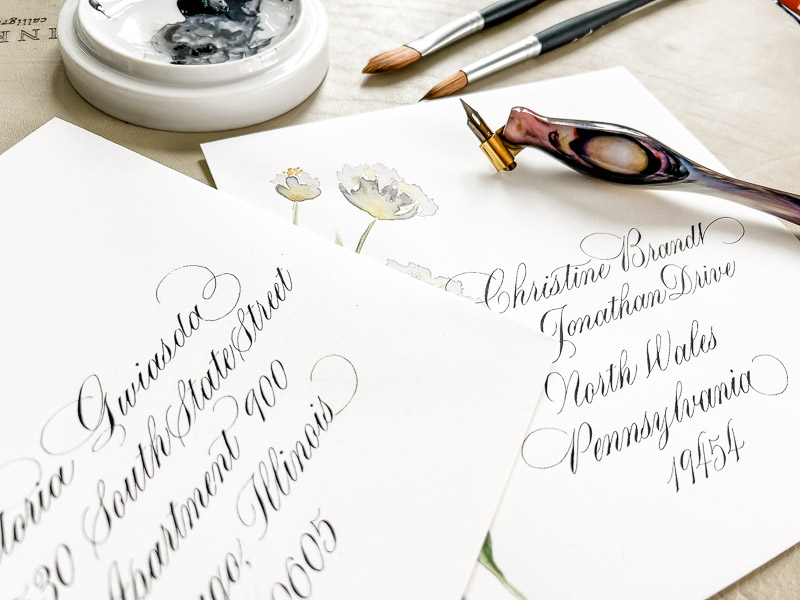 Gwiasda
South State Street
Apartment 900
Illinois
Christine Brandt
Jonathan Drive
North Wales
Pennsylvania
19454